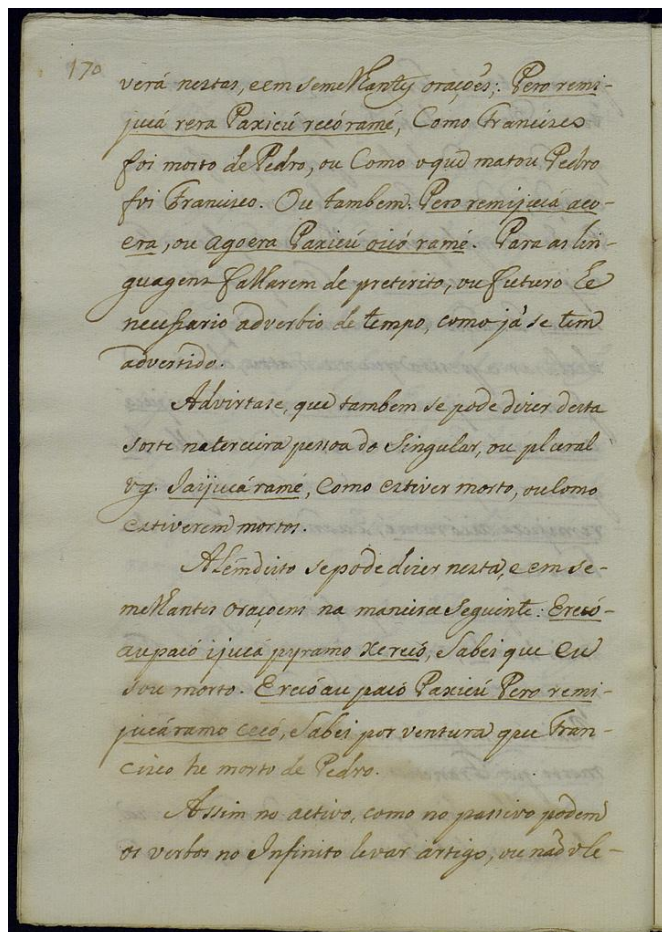 170
verá nestas, e em semelhantes orações; Pero remi-
jucá rera Paxicú recóramé, Como Francisco
foi morto de Pedro, ou Como o que matou Pedro
foi Francisco. Ou tambem: Pero remijucá aco-
era, ou agoera Paxicú oicó ramé. Para as lin-
guagens fallarem de preterito, ou futuro he
necessario adverbio de tempo, como já se tem
advertido.
Advirtase, que tambem se pode dizer desta
sorte na terceira pessoa do Singular, ou plural
vg. Jaijucáramé, Como estiver morto, ou Como
estiverem mortos.
Alémdisto se pode dizer nesta, e em se-
melhantes oraçoens na maneira seguinte: Erecó-
aupaió ijucá pyramo xerecó, Sabes que eu
sou morto. Erecóau paió Paxicú Pero remi-
jucáramo cecó, Sabes por ventura que Fran-
cisco he morto de Pedro.
Assim no activo, como no passivo podem
os verbos no Infinito levar artigo, ou não o le-